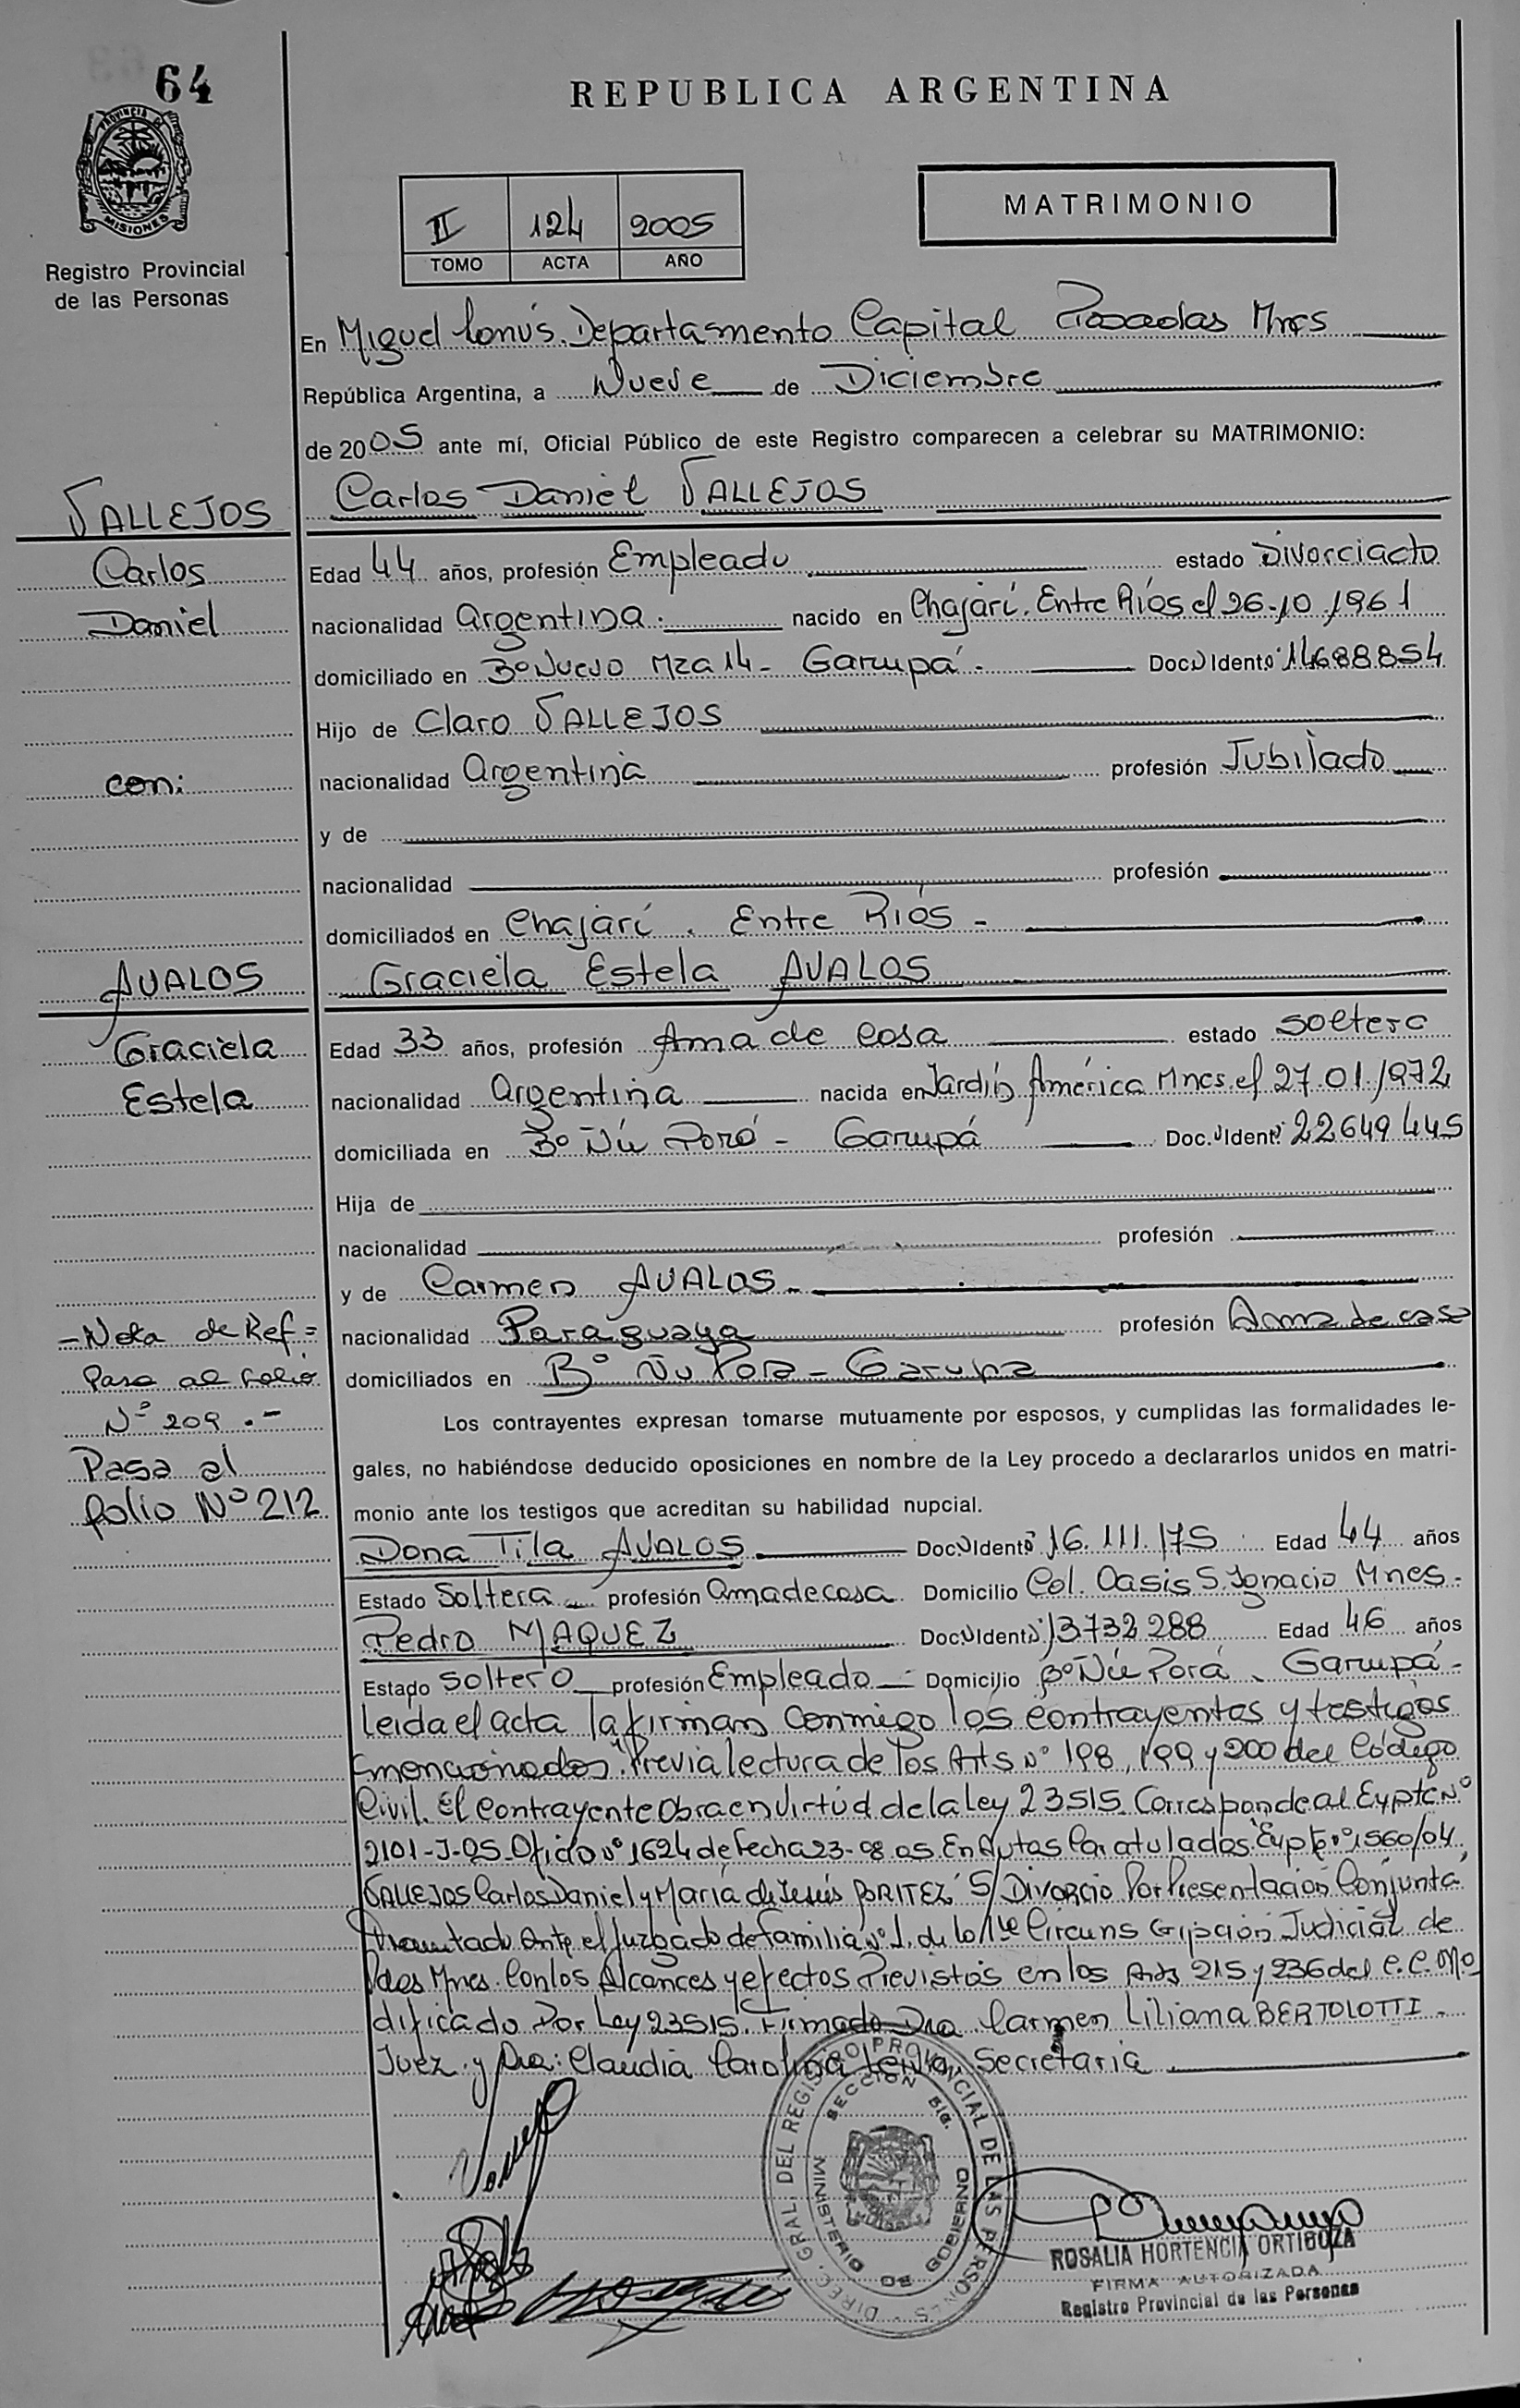 64
REPUBLICA ARGENTINA
PROVINCIA DE
MISIONES
Registro Provincial
de las Personas
II 124 2005
TOMO ACTA AÑO
MATRIMONIO
En Miguel Lanús. Departasmento Capital Posadas Mnes
República Argentina, a Nueve de Diciembre
de 2005 ante mí, Oficial Público de este Registro comparecen a celebrar su MATRIMONIO:
VALLEJOS
Carlos Daniel VALLEJOS
Carlos
Edad 44 años, profesión Empleado estado Divorciado
Daniel
nacionalidad argentina. nacido en Chajarí. Entre Ríos el 26-10-1961
domiciliado en Bº Nuevo Mza 14 - Garupá. Doc. N Ident. 14688854
Hijo de Claro VALLEJOS
con:
nacionalidad argentina profesión Jubilado
y de
nacionalidad profesión
domiciliados en Chajarí. Entre Ríos -
AVALOS
Graciela Estela AVALOS
Graciela
Edad 33 años, profesión Ama de Casa estado soltera
Estela
nacionalidad argentina nacida en Jardín América Mnes. el 27.01.1972
domiciliada en Bº Ñu Porá - Garupá Doc. N Ident. 22649445
Hija de
nacionalidad profesión
y de Carmen AVALOS.
- Nota de Ref =
nacionalidad Paraguaya profesión Ama de casa
Pasa al folio
domiciliados en Bº Ñu Pora - Garupa
Nº 209 .-
Los contrayentes expresan tomarse mutuamente por esposos, y cumplidas las formalidades le-
Pasa al
gales, no habiéndose deducido oposiciones en nombre de la Ley procedo a declararlos unidos en matri-
folio Nº 212
monio ante los testigos que acreditan su habilidad nupcial.
Dona Tila AVALOS Doc. N Ident. 16.111.175 Edad 44 años
Estado Soltera profesión Ama de casa Domicilio Col. Oasis S. Ignacio Mnes.
Pedro MAQUEZ Doc. N Ident. 13732288 Edad 46 años
Estado Soltero profesión Empleado Domicilio Bº Ñu Porá. Garupá -
Leida el acta la firman conmigo los contrayentes y testigos
mencionados. Previa lectura de los Arts Nº 198, 199 y 200 del Código
Civil. El Contrayente Obra en Virtud de la Ley 23515. Corresponde al Expte Nº
2101-J-05 Oficio Nº 1624 de Fecha 23-08-05 En Autos Caratulados "Expte Nº 1560/04
VALLEJOS Carlos Daniel y María de Jesús BRITEZ S/ Divorcio Por Presentación Conjunta"
tramitado Ante el Juzgado de Familia Nº 1. de la 1ra Circunscripción Judicial de
Pdas Mnes. Con los Alcances y efectos Previstos en los Arts 215 y 236 del C.C. Mo
dificado Por Ley 23515. Firmado Dra. Carmen Liliana BERTOLOTTI.
Juez. y Dra: Claudia Carolina Secretaria
DIREC. GRAL. DEL REGISTRO PROVINCIAL DE LAS PERSONAS
SECCION
MINISTERIO DE GOBIERNO
ROSALIA HORTENCIA ORTIGOZA
FIRMA AUTORIZADA
Registro Provincial de las Personas